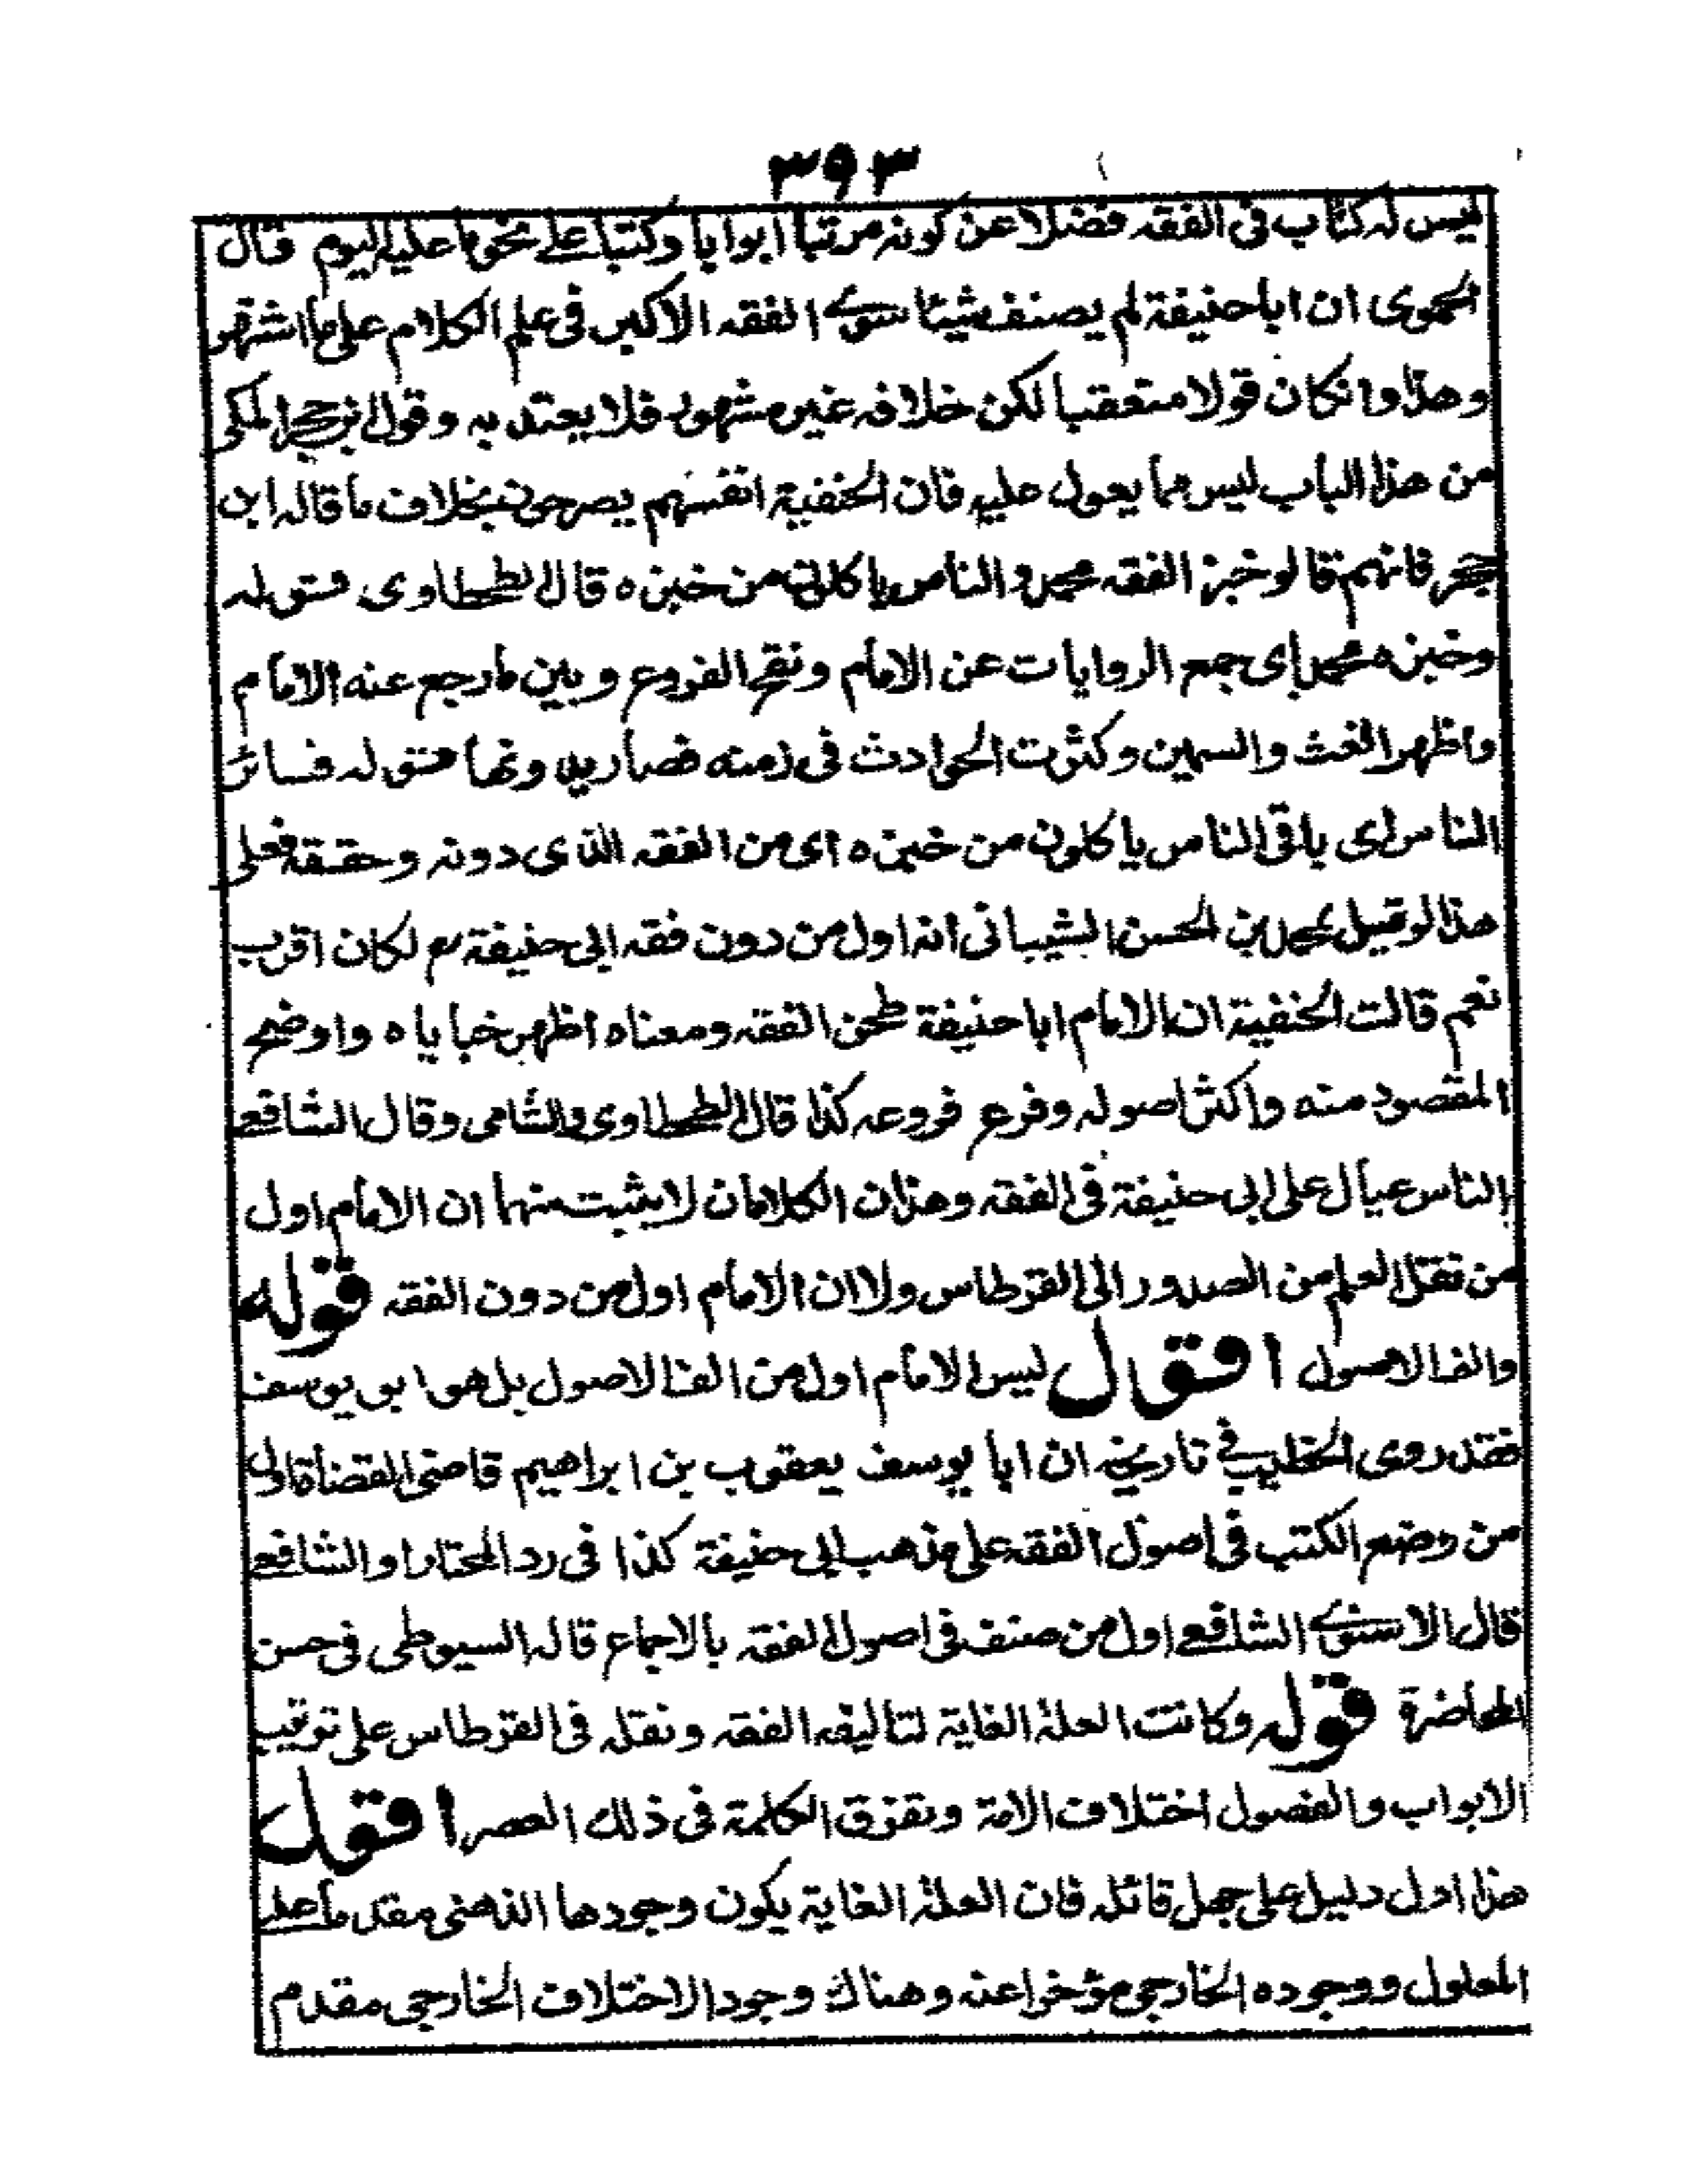 ٣٩٣
ليس له كتاب فى الفقه فضلا عن كونه مرتبا ابوابا وكتبا على نحو ما عليه اليوم قال
الحموى ان ابا حنيفة لم يصنف شيئا سوى الفقه الاكبر فى علم الكلام على ما اشتهر
وهذا وانكان قولا متعقبا لكن خلافه غير مشهور فلا يعتد به وقول ابن حجر المكى
من هذا الباب ليس مما يعول عليه فان الحنفية انفسهم يصرحون بخلاف ما قاله ابن
حجر فانهم قالو خبز الفقه محمد والناس ياكلون من خبزه قال الطحطاوى قوله
وخبزه محمد اى جمع الروايات عن الامام ونقح الفروع وبين ما رجع عنه الامام
واظهر الغث والسمين وكثرت الحوادث فى زمنه فصار يدونها قوله فسائر
الناس اى باقى الناس ياكلون من خبزه اى من الفقه الذى دونه وحققه فعلى
هذا لو قيل لمحمد بن الحسن الشيبانى انه اول من دون فقه ابى حنيفة رح لكان اقرب
نعم قالت الحنفية ان الامام ابا حنيفة طحن الفقه ومعناه اظهر خباياه واوضح
المقصود منه واكثر اصوله وفرع فروعه كذا قال الطحطاوى والشامى وقال الشافعى
الناس عيال على ابى حنيفة فى الفقه وهذان الكلامان لا يثبت منهما ان الامام اول
من نقل العلم من الصدور الى القرطاس ولا ان الامام اول من دون الفقه قوله
والف الاصول اقول ليس الامام اول من الف الاصول بل هو ابو يوسف
فقد روى الخطيب فى تاريخه ان ابا يوسف يعقوب بن ابراهيم قاضى القضاة اول
من وضع الكتب فى اصول الفقه على مذهب ابى حنيفة كذا فى رد المحتار او الشافعى
قال الاسنوى الشافعى اول من صنف فى اصول الفقه بالاجماع قاله السيوطى فى حسن
المحاضرة قوله وكانت العلة الغاية لتاليف الفقه ونقله فى القرطاس على ترتيب
الابواب والفصول اختلاف الامة وتفرق الكلمة فى ذلك العصر اقول
هذا ادل دليل على جهل قائله فان العلة الغاية يكون وجودها الذهنى مقدما على
المعلول ووجوده الخارجى مؤخرا عنه وهناك وجود الاختلاف الخارجى مقدم